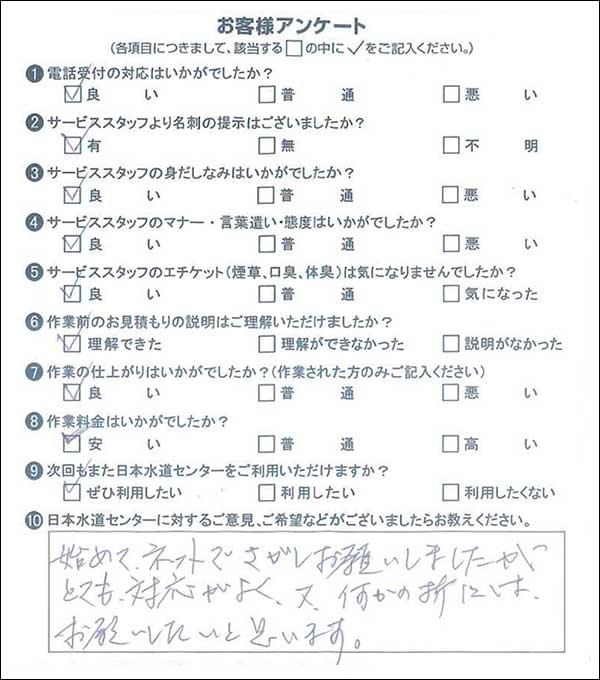 お客様アンケート
(各項目につきまして、該当する□の中に✓をご記入ください。)
❶電話受付の対応はいかがでしたか?
☑良い □普通 □悪い
❷サービススタッフより名刺の提示はございましたか?
☑有 □無 □不明
❸サービススタッフの身だしなみはいかがでしたか?
☑良い □普通 □悪い
❹サービススタッフのマナー・言葉遣い・態度はいかがでしたか?
☑良い □普通 □悪い
❺サービススタッフのエチケット(煙草、口臭、体臭)は気になりませんでしたか?
☑良い □普通 □気になった
❻作業前のお見積もりの説明はご理解いただけましたか?
☑理解できた □理解ができなかった □説明がなかった
❼作業の仕上がりはいかがでしたか?(作業された方のみご記入ください)
☑良い □普通 □悪い
❽作業料金はいかがでしたか?
☑安い □普通 □高い
❾次回もまた日本水道センターをご利用いただけますか?
☑ぜひ利用したい □利用したい □利用したくない
❿日本水道センターに対するご意見、ご希望などがございましたらお教えください。
始めて、ネットでさがしお願いしましたが、
とても、対応がよく、又、何かの折には、
お願いしたいと思います。